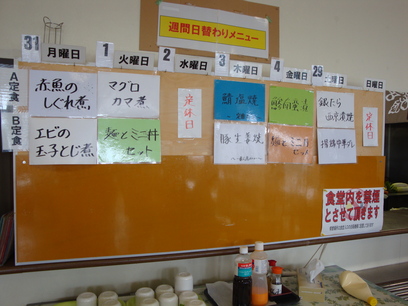 週間日替わりメニュー
31 月曜日
1 火曜日
2 水曜日
3 木曜日
4 金曜日
29 土曜日
日曜日
A定食
B定食
赤魚の
しぐれ煮
マグロ
カマ煮
定休日
鯖塩焼
銀だら
西京焼
定休日
エビの
玉子とじ煮
麺とミニ丼
セット
豚生姜焼
麺とミニ丼
セット
食堂内を禁煙
とさせて頂きます